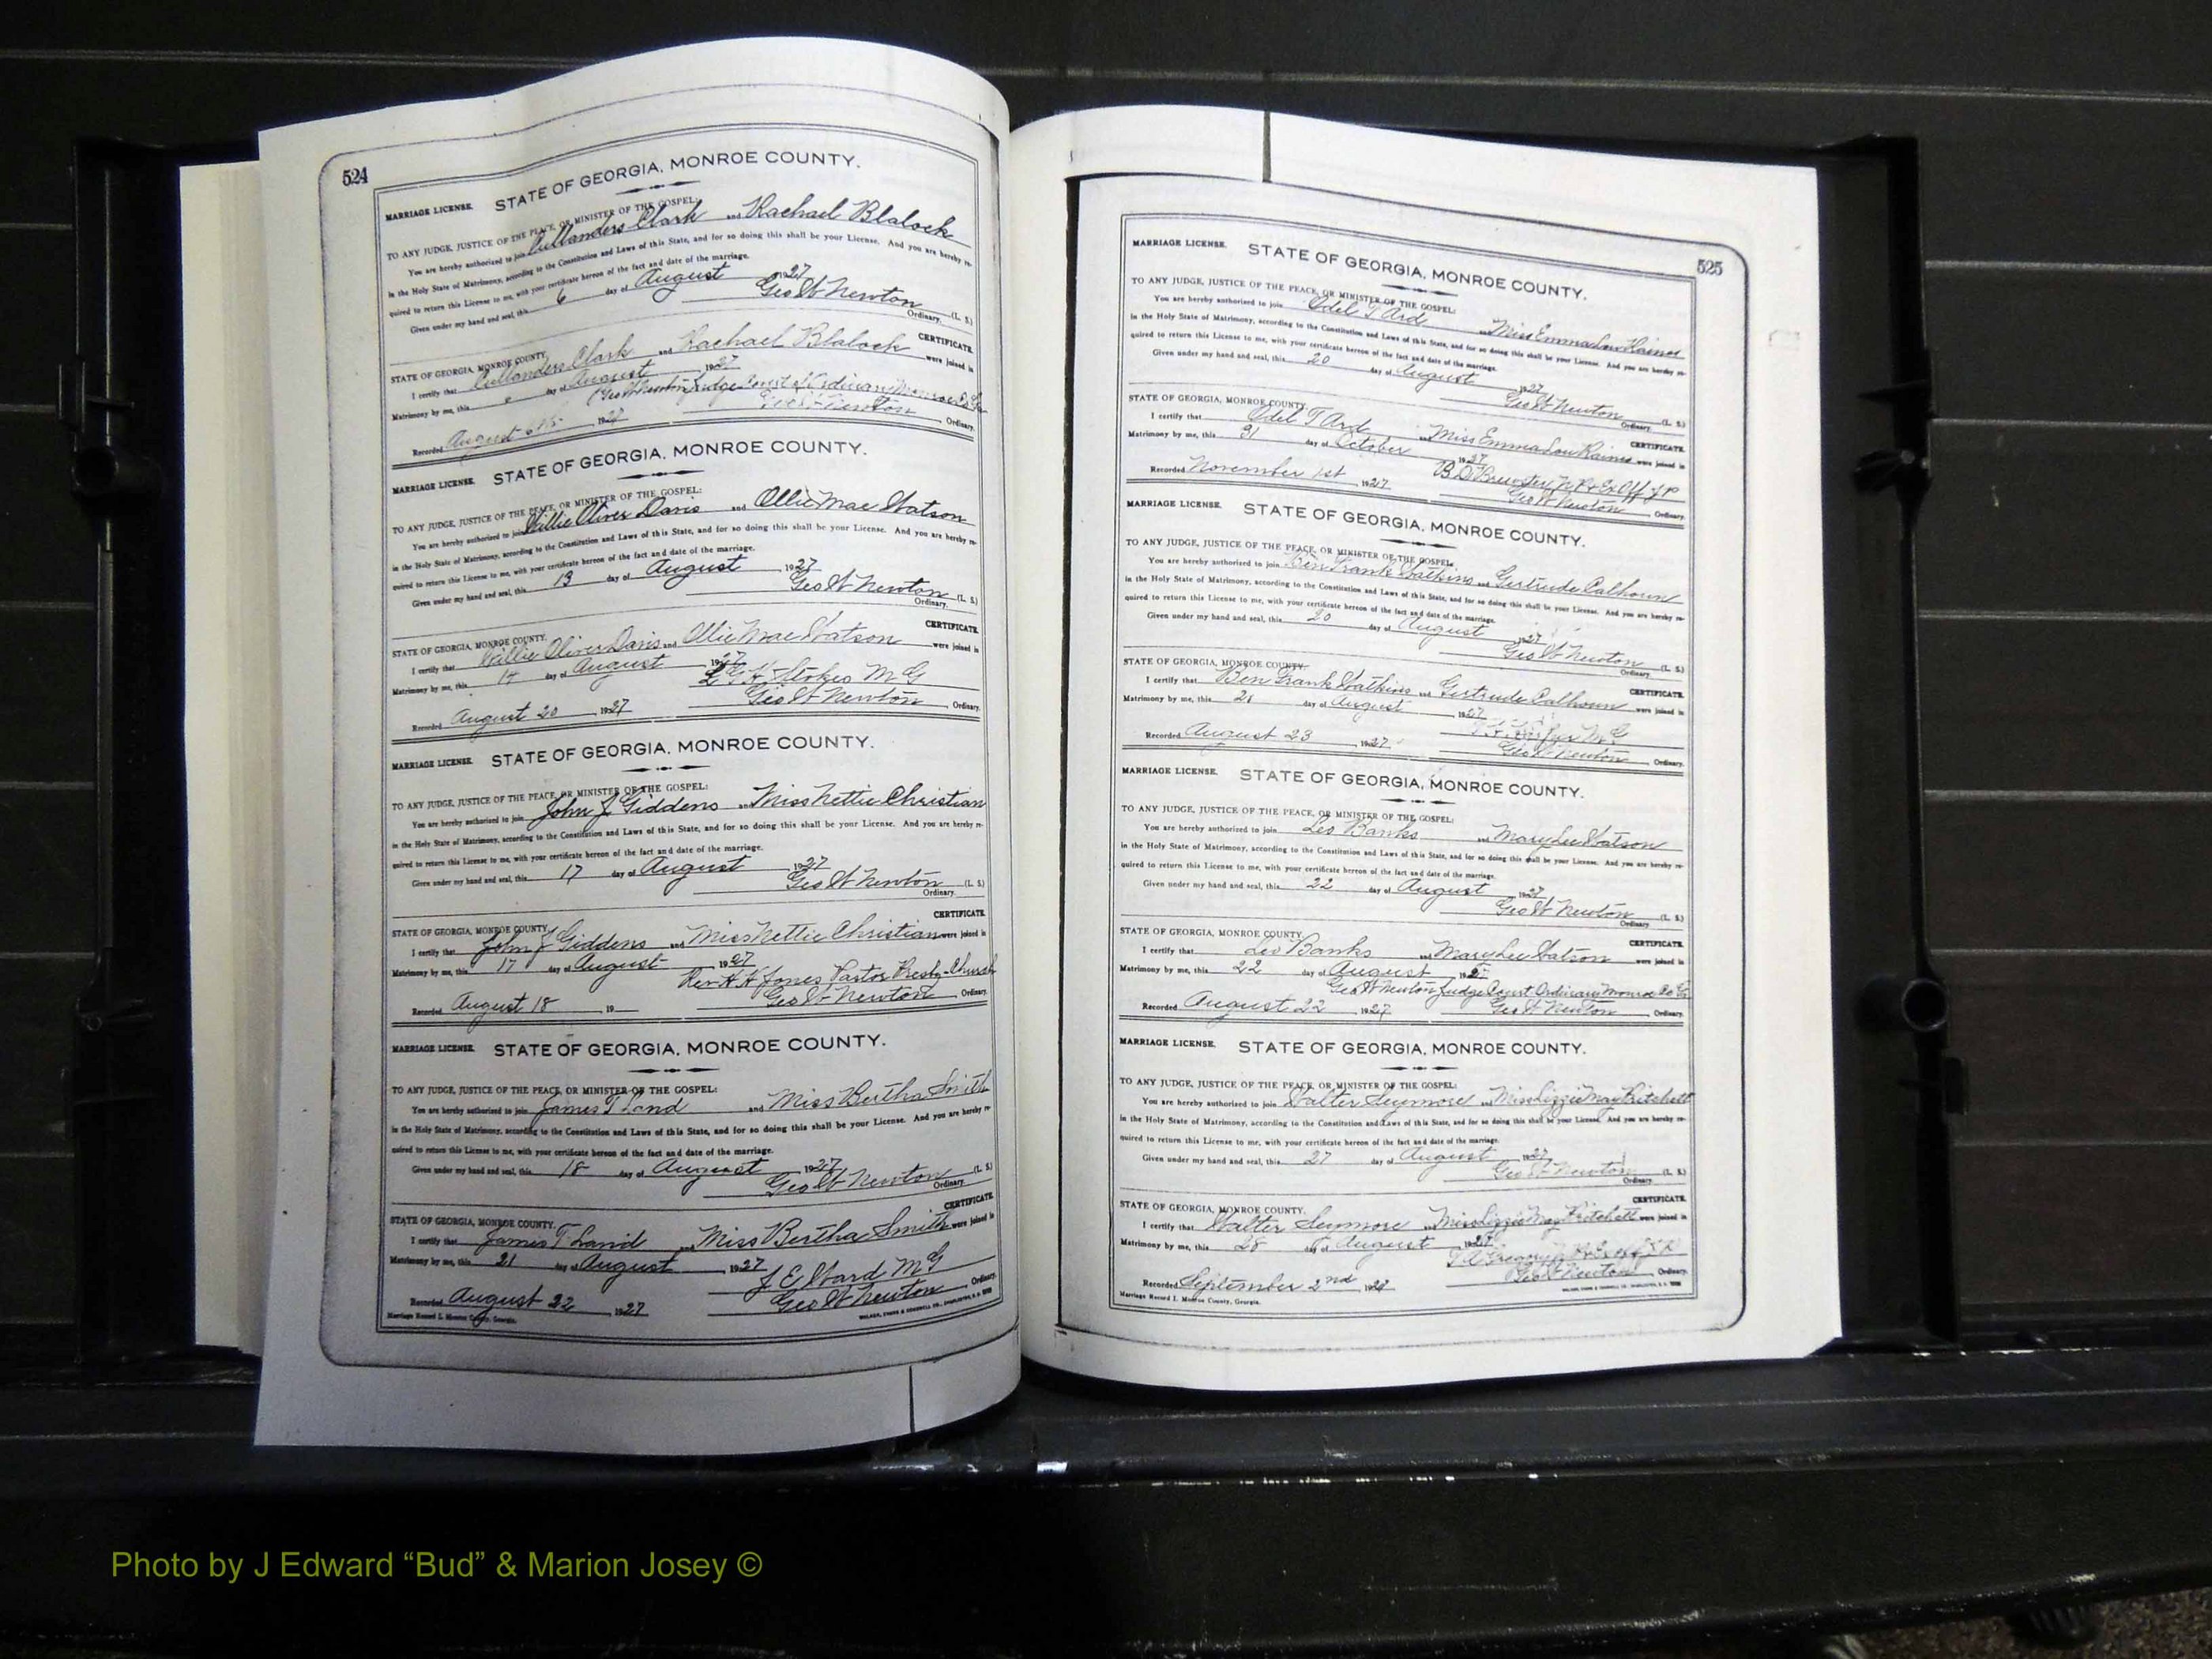 524
STATE OF GEORGIA, MONROE COUNTY.
MARRIAGE LICENSE.
TO ANY JUDGE, JUSTICE OF THE PEACE, OR MINISTER OF THE GOSPEL:
You are hereby authorized to join Cullanders Clark and Rachael Blalock
in the Holy State of Matrimony, according to the Constitution and Laws of this State, and for so doing this shall be your License. And you are hereby re-
quired to return this License to me, with your certificate hereon of the fact and date of the marriage.
Given under my hand and seal, this 6 day of August 1927
Geo W Newton (L. S.)
Ordinary.
CERTIFICATE
STATE OF GEORGIA, MONROE COUNTY.
I certify that Cullanders Clark and Rachael Blalock were joined in
Matrimony by me, this 6 day of August 1927
Geo W Newton Judge Court of Ordinary Monroe Co Ga
Recorded August 6th 1927 Geo W Newton Ordinary.
MARRIAGE LICENSE. STATE OF GEORGIA, MONROE COUNTY.
TO ANY JUDGE, JUSTICE OF THE PEACE, OR MINISTER OF THE GOSPEL:
You are hereby authorized to join Willie Oliver Davis and Ollie Mae Watson
in the Holy State of Matrimony, according to the Constitution and Laws of this State, and for so doing this shall be your License. And you are hereby re-
quired to return this License to me, with your certificate hereon of the fact and date of the marriage.
Given under my hand and seal, this 13 day of August 1927
Geo W Newton (L. S.)
Ordinary.
CERTIFICATE
STATE OF GEORGIA, MONROE COUNTY.
I certify that Willie Oliver Davis and Ollie Mae Watson were joined in
Matrimony by me, this 14 day of August 1927
Stokes M G
Recorded August 20 1927 Geo W Newton Ordinary.
MARRIAGE LICENSE. STATE OF GEORGIA, MONROE COUNTY.
TO ANY JUDGE, JUSTICE OF THE PEACE, OR MINISTER OF THE GOSPEL:
You are hereby authorized to join John J Giddens and Miss Nettie Christian
in the Holy State of Matrimony, according to the Constitution and Laws of this State, and for so doing this shall be your License. And you are hereby re-
quired to return this License to me, with your certificate hereon of the fact and date of the marriage.
Given under my hand and seal, this 17 day of August 1927
Geo W Newton (L. S.)
Ordinary.
CERTIFICATE
STATE OF GEORGIA, MONROE COUNTY.
I certify that John J Giddens and Miss Nettie Christian were joined in
Matrimony by me, this 17 day of August 1927
Rev H H Jones Pastor Presby-Church
Recorded August 18 19 Geo W Newton Ordinary.
MARRIAGE LICENSE. STATE OF GEORGIA, MONROE COUNTY.
TO ANY JUDGE, JUSTICE OF THE PEACE, OR MINISTER OF THE GOSPEL:
You are hereby authorized to join James T Land and Miss Bertha Smith
in the Holy State of Matrimony, according to the Constitution and Laws of this State, and for so doing this shall be your License. And you are hereby re-
quired to return this License to me, with your certificate hereon of the fact and date of the marriage.
Given under my hand and seal, this 18 day of August 1927
Geo W Newton (L. S.)
Ordinary.
CERTIFICATE
STATE OF GEORGIA, MONROE COUNTY.
I certify that James T Land and Miss Bertha Smith were joined in
Matrimony by me, this 21 day of August 1927
J E Ward M G
Recorded August 22 1927 Geo W Newton Ordinary.
Marriage Record I. Monroe County, Georgia.
525
MARRIAGE LICENSE. STATE OF GEORGIA, MONROE COUNTY.
TO ANY JUDGE, JUSTICE OF THE PEACE, OR MINISTER OF THE GOSPEL:
You are hereby authorized to join Odel T Ard and Miss Emma Lou Raines
in the Holy State of Matrimony, according to the Constitution and Laws of this State, and for so doing this shall be your License. And you are hereby re-
quired to return this License to me, with your certificate hereon of the fact and date of the marriage.
Given under my hand and seal, this 20 day of August 1927
Geo W Newton (L. S.)
Ordinary.
STATE OF GEORGIA, MONROE COUNTY.
CERTIFICATE
I certify that Odel T Ard and Miss Emma Lou Raines were joined in
Matrimony by me, this 31 day of October 1927
B D Brewster N P & Ex Off J P
Recorded November 1st 1927 Geo W Newton Ordinary.
MARRIAGE LICENSE. STATE OF GEORGIA, MONROE COUNTY.
TO ANY JUDGE, JUSTICE OF THE PEACE, OR MINISTER OF THE GOSPEL:
You are hereby authorized to join Ben Frank Watkins and Gertrude Calhoun
in the Holy State of Matrimony, according to the Constitution and Laws of this State, and for so doing this shall be your License. And you are hereby re-
quired to return this License to me, with your certificate hereon of the fact and date of the marriage.
Given under my hand and seal, this 20 day of August 1927
Geo W Newton (L. S.)
Ordinary.
STATE OF GEORGIA, MONROE COUNTY.
CERTIFICATE
I certify that Ben Frank Watkins and Gertrude Calhoun were joined in
Matrimony by me, this 21 day of August 1927
M G
Recorded August 23 1927 Geo W Newton Ordinary.
MARRIAGE LICENSE. STATE OF GEORGIA, MONROE COUNTY.
TO ANY JUDGE, JUSTICE OF THE PEACE, OR MINISTER OF THE GOSPEL:
You are hereby authorized to join Leo Banks and Mary Lee Watson
in the Holy State of Matrimony, according to the Constitution and Laws of this State, and for so doing this shall be your License. And you are hereby re-
quired to return this License to me, with your certificate hereon of the fact and date of the marriage.
Given under my hand and seal, this 22 day of August 1927
Geo W Newton (L. S.)
Ordinary.
STATE OF GEORGIA, MONROE COUNTY.
CERTIFICATE
I certify that Leo Banks and Mary Lee Watson were joined in
Matrimony by me, this 22 day of August 1927
Geo W Newton Judge Court Ordinary Monroe Co Ga
Recorded August 22 1927 Geo W Newton Ordinary.
MARRIAGE LICENSE. STATE OF GEORGIA, MONROE COUNTY.
TO ANY JUDGE, JUSTICE OF THE PEACE, OR MINISTER OF THE GOSPEL:
You are hereby authorized to join Walter Seymore and Miss Lizzie May Pritchett
in the Holy State of Matrimony, according to the Constitution and Laws of this State, and for so doing this shall be your License. And you are hereby re-
quired to return this License to me, with your certificate hereon of the fact and date of the marriage.
Given under my hand and seal, this 27 day of August 1927
Geo W Newton (L. S.)
Ordinary.
CERTIFICATE
STATE OF GEORGIA, MONROE COUNTY.
I certify that Walter Seymore and Miss Lizzie May Pritchett were joined in
Matrimony by me, this 28 day of August 1927
Geo W Newton Ordinary.
Recorded September 2nd 1927
Marriage Record I. Monroe County, Georgia.
Photo by J Edward “Bud” & Marion Josey ©